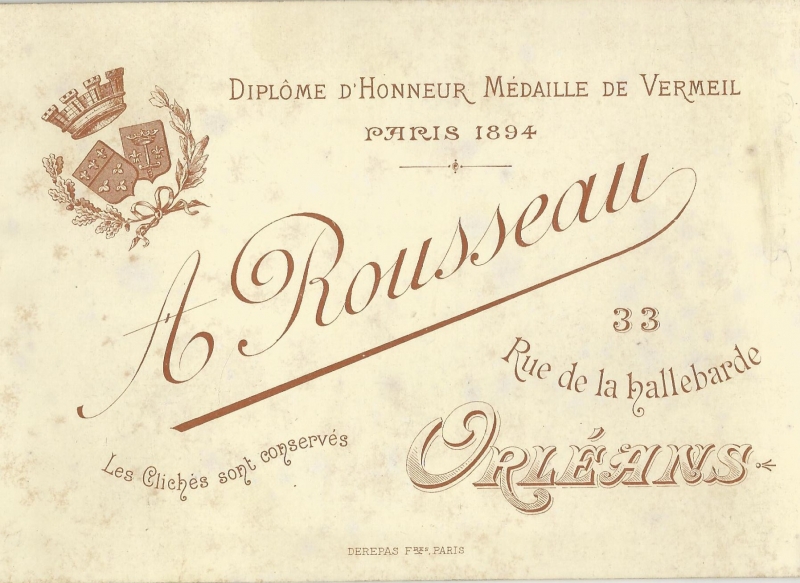 DIPLÔME D'HONNEUR MÉDAILLE DE VERMEIL
PARIS 1894
A Rousseau
33
Rue de la hallebarde
ORLÉANS
Les Clichés sont conservés
DEREPAS FRES, PARIS